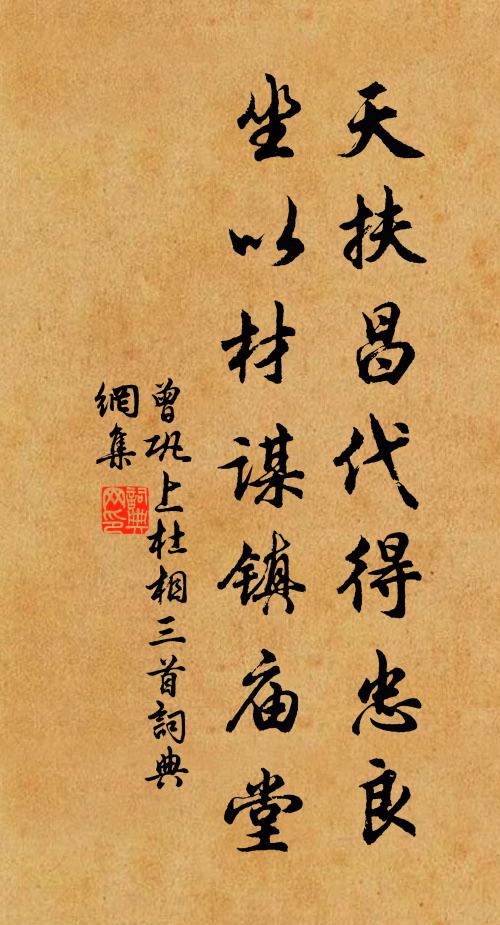 天扶昌代得忠良
坐以材谋镇庙堂
曾巩上杜相三首詞典
網集
詞典
网印